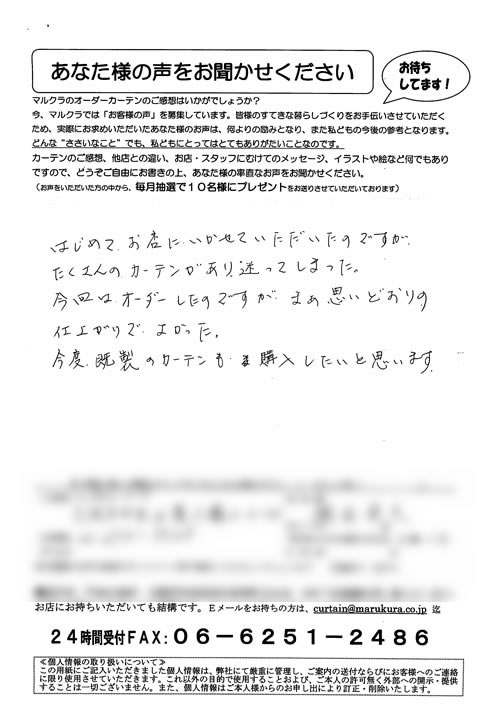 あなた様の声をお聞かせください
お待ち
してます！
マルクラのオーダーカーテンのご感想はいかがでしょうか？
今、マルクラでは「お客様の声」を募集しています。皆様のすてきな暮らしづくりをお手伝いさせていただく
ため、実際にお求めいただいたあなた様のお声は、何よりの励みとなり、また私どもの今後の参考となります。
どんな“ささいなこと”でも、私どもにとってはとてもありがたいことなのです。
カーテンのご感想、他店との違い、お店・スタッフにむけてのメッセージ、イラストや絵など何でもあり
ですので、どうぞご自由にお書きの上、あなた様の率直なお声をお聞かせください。
（お声をいただいた方の中から、毎月抽選で１０名様にプレゼントをお送りさせていただいております）
はじめて、お店に、いかせていただいたのですが、
たくさんのカーテンがあり、迷ってしまった。
今回は、オーダーしたのですが、まあ思いどおりの
仕上がりで、よかった。
今度、既製のカーテンも、購入したいと思います。
お店にお持ちいただいても結構です。Ｅメールをお持ちの方は、curtain@marukura.co.jp 迄
２４時間受付FAX：０６－６２５１－２４８６
≪個人情報の取り扱いについて≫
この用紙にご記入いただきました個人情報は、弊社にて厳重に管理し、ご案内の送付ならびにお客様へのご連絡
に限り使用させていただきます。これ以外の目的で使用することおよび、ご本人の許可無く外部への開示・提供
することは一切ございません。また、個人情報はご本人様からのお申し出により訂正・削除いたします。